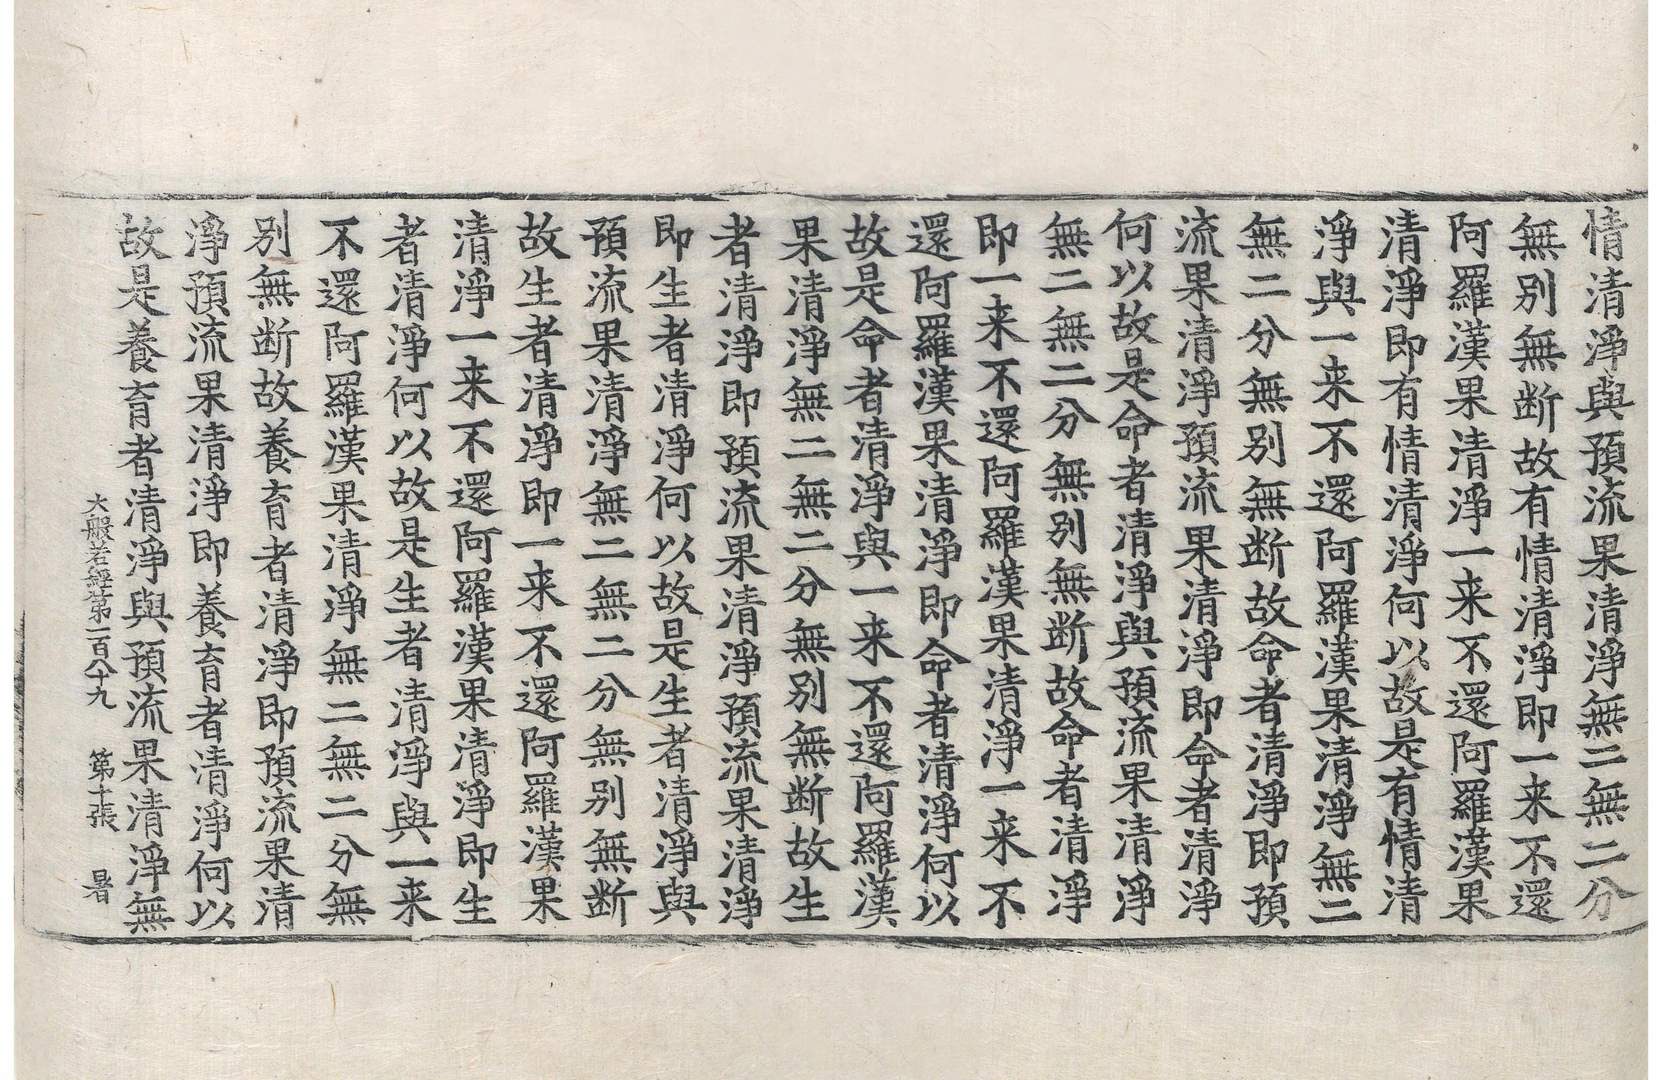 情清淨與預流果清淨無二無二分
無別無断故有情清淨即一来不還
阿羅漢果清淨一来不還阿羅漢果
清淨即有情清淨何以故是有情清
淨與一来不還阿羅漢果清淨無二
無二分無別無断故命者清淨即預
流果清淨預流果清淨即命者清淨
何以故是命者清淨與預流果清淨
無二無二分無別無断故命者清淨
即一来不還阿羅漢果清淨一来不
還阿羅漢果清淨即命者清淨何以
故是命者清淨與一来不還阿羅漢
果清淨無二無二分無別無断故生
者清淨即預流果清淨預流果清淨
即生者清淨何以故是生者清淨與
預流果清淨無二無二分無別無断
故生者清淨即一来不還阿羅漢果
清淨一来不還阿羅漢果清淨即生
者清淨何以故是生者清淨與一来
不還阿羅漢果清淨無二無二分無
別無断故養育者清淨即預流果清
淨預流果清淨即養育者清淨何以
故是養育者清淨與預流果清淨無
大般若經第一百八十九 第十張 暑